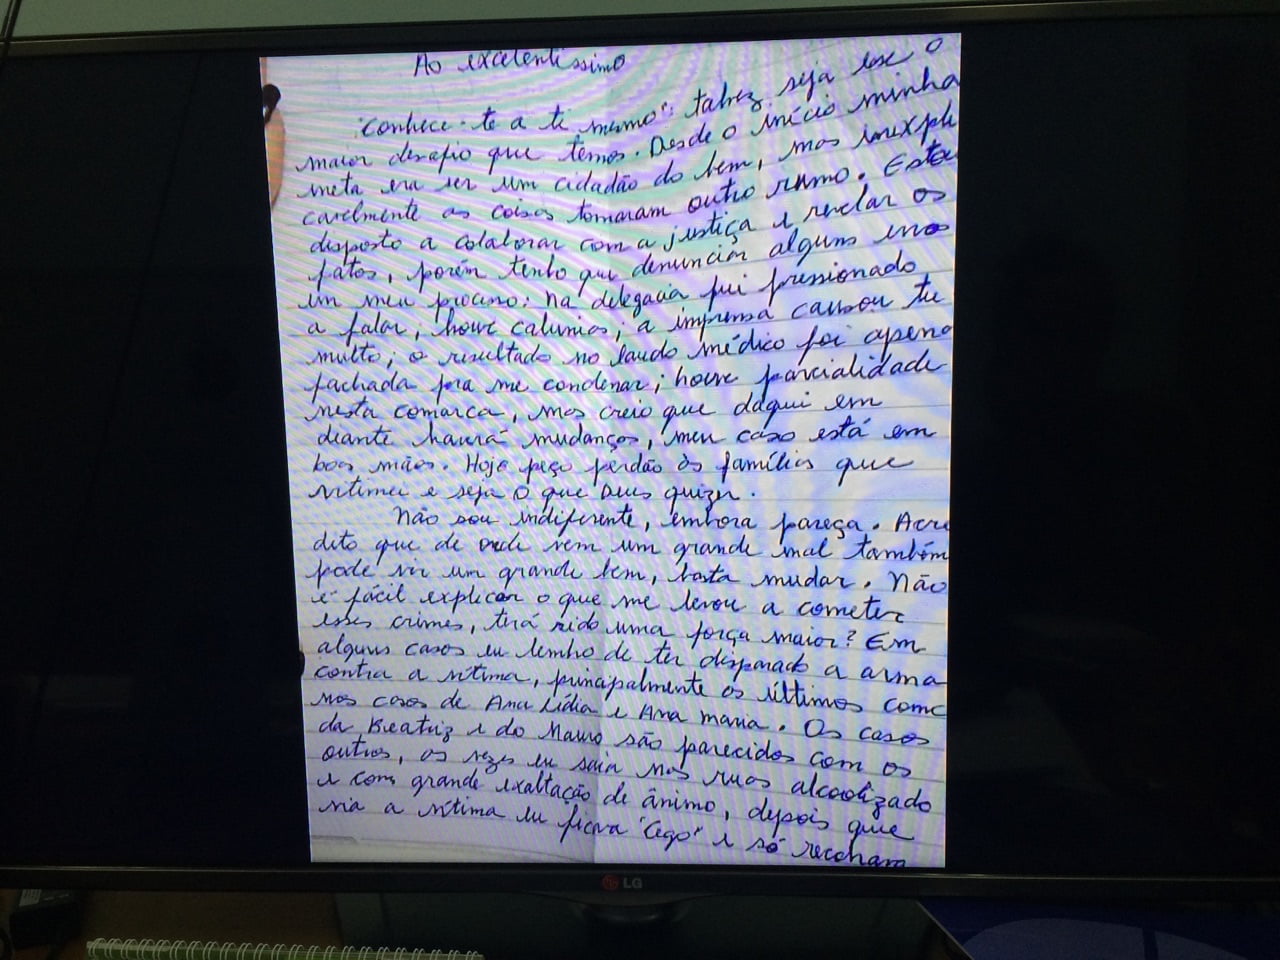 Ao excelentissimo
"Conhece-te a ti mesmo": talvez seja esse o
maior desafio que temos. Desde o início minha
meta era ser um cidadão do bem, mas inexpli
cavelmente as coisas tomaram outro rumo. Estou
disposto a colaborar com a justiça e revelar os
fatos, porém tenho que denunciar alguns erros
em meu processo: na delegacia fui pressionado
a falar; houve calunias; a imprensa causou tu
multo; o resultado no laudo médico foi apena
fachada pra me condenar; houve parcialidade
nesta comarca, mas creio que daqui em
diante haverá mudanças, meu caso está em
boas mãos. Hoje peço perdão às famílias que
vitimei e seja o que Deus quizer.
Não sou indiferente, embora pareça. Acre
dito que de onde vem um grande mal também
pode vir um grande bem, basta mudar. Não
é fácil explicar o que me levou a cometer
esses crimes, terá sido uma força maior? Em
alguns casos eu lembro de ter disparado a arma
contra a vítima, principalmente os últimos como
nos casos de Ana Lídia e Ana Maria. Os casos
da Beatriz e do Mauro são parecidos com os
outros, as vezes eu saia nas ruas alcoolizado
e com grande exaltação de ânimo, depois que
via a vítima eu ficava "cego" e só
LG